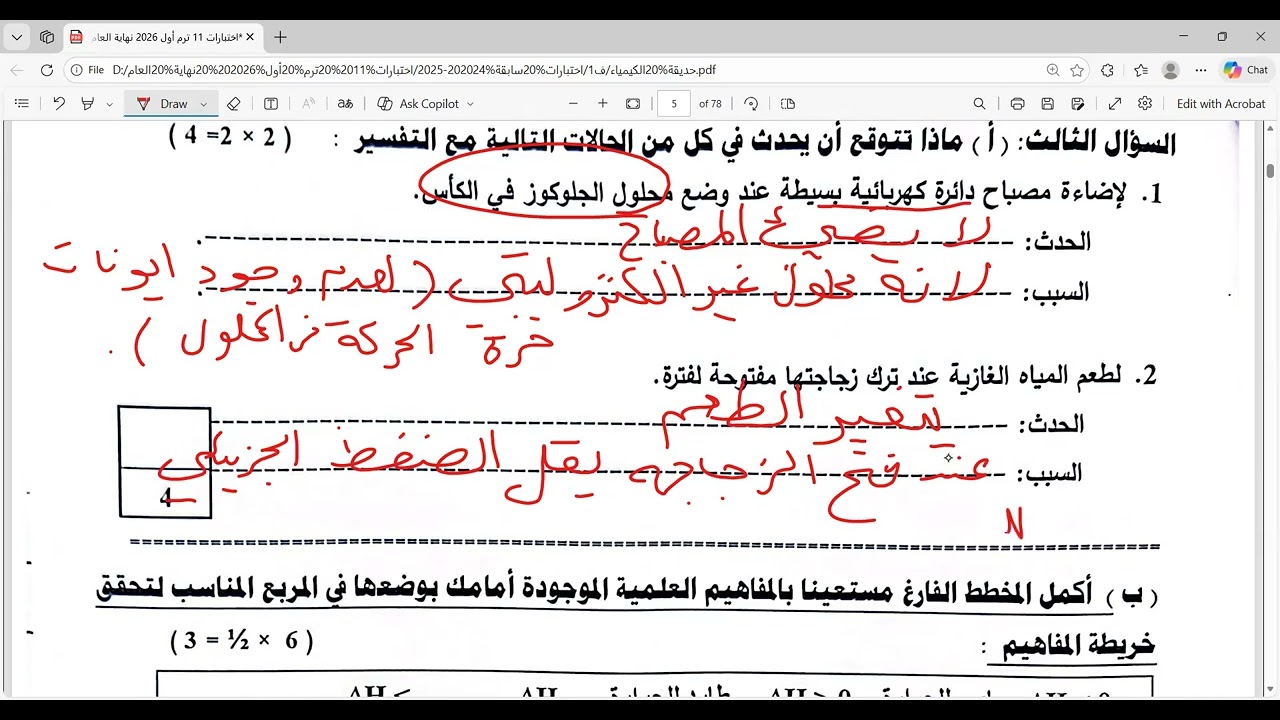 *اختبارات 11 ترم أول 2026 نهاية العام
File
D:/حديقة%20الكيمياء/ف1/اختبارات%20سابقة%202024-2025/اختبارات%2011%20ترم%20أول%202026%20نهاية%20العام.pdf
Chat
Draw
Ask Copilot
5 of 78
Edit with Acrobat
السؤال الثالث: (أ) ماذا تتوقع أن يحدث في كل من الحالات التالية مع التفسير : ( 2 × 2= 4 )
1. لإضاءة مصباح دائرة كهربائية بسيطة عند وضع محلول الجلوكوز في الكأس.
الحدث: لا يضئ المصباح
السبب: لانه محلول غير الكتروليتى ( لعدم وجود ايونات
حرة الحركة فى المحلول ) .
2. لطعم المياه الغازية عند ترك زجاجتها مفتوحة لفترة.
الحدث: يتغير الطعم
السبب: عند فتح الزجاجه يقل الضغط الجزيئى
4
(ب) أكمل المخطط الفارغ مستعينا بالمفاهيم العلمية الموجودة أمامك بوضعها في المربع المناسب لتحقق
خريطة المفاهيم : ( 6 × ½ = 3 )